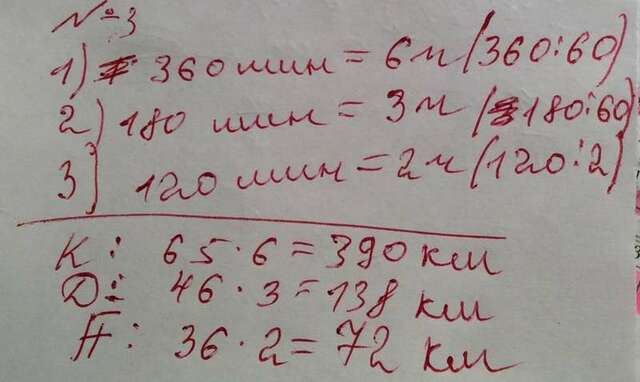 № 3
1) 360 мин = 6 ч (360:60)
2) 180 мин = 3 ч (180:60)
3) 120 мин = 2 ч (120:2)
К: 65·6=390 км
Д: 46·3=138 км
П: 36·2=72 км